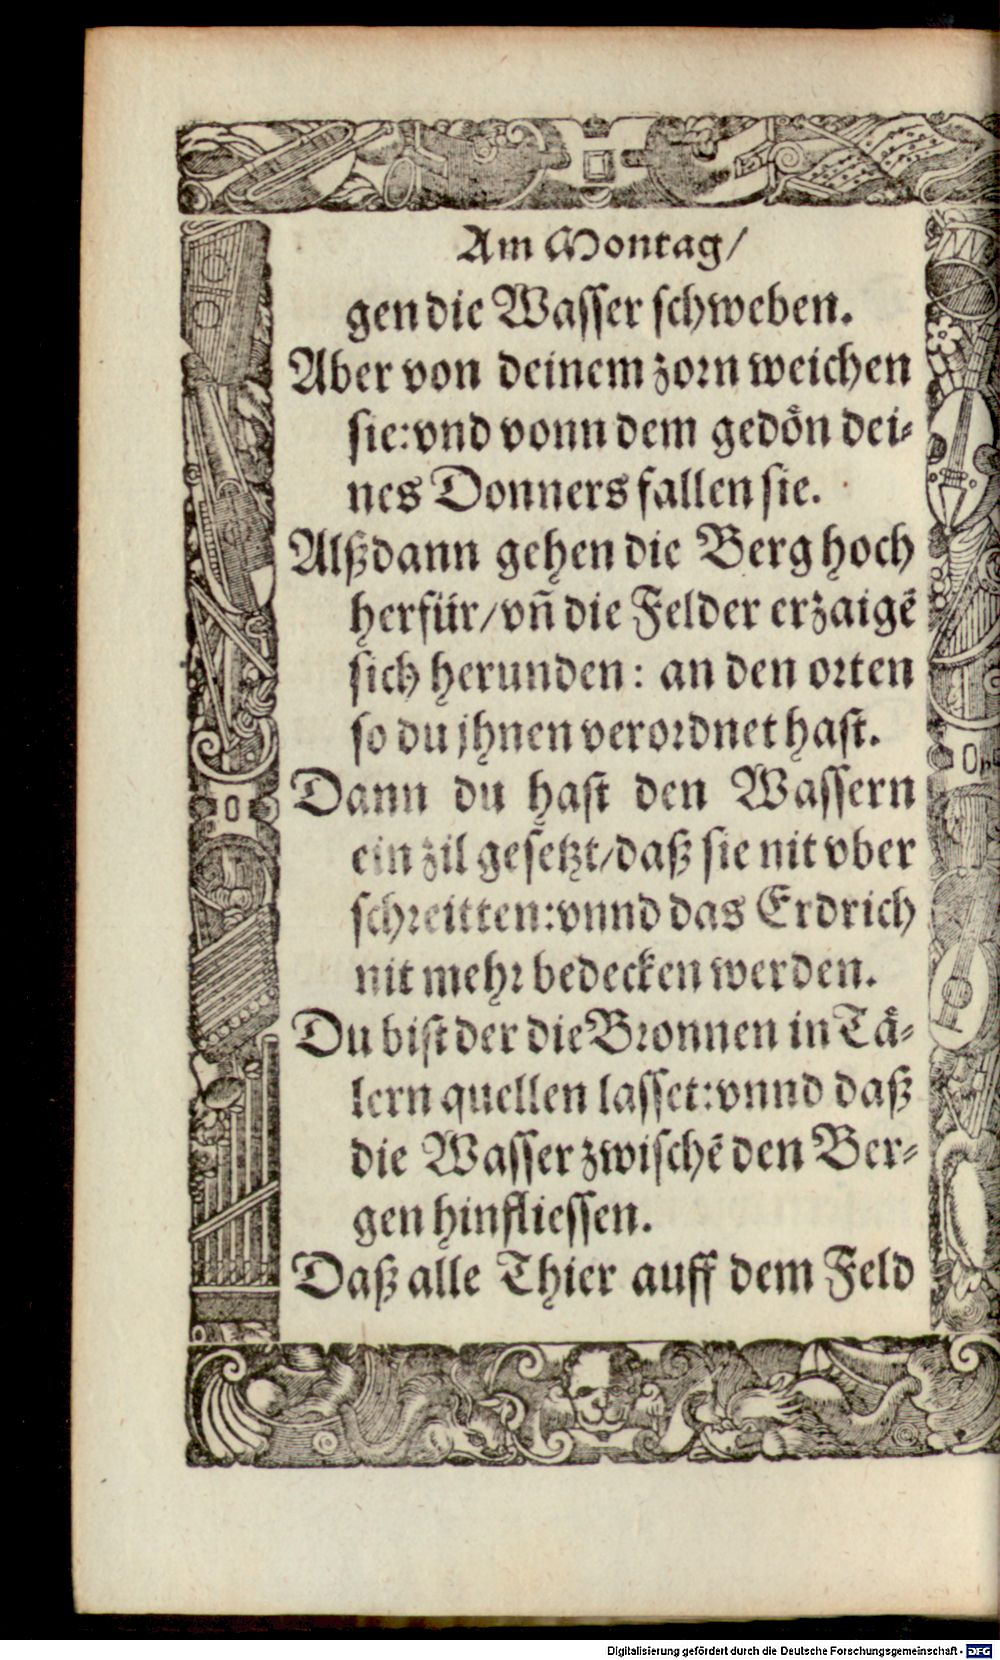 Am Montag/
gen die Wasser schweben.
Aber von deinem zorn weichen
sie: vnd vonn dem gedön dei-
nes Donners fallen sie.
Alßdann gehen die Berg hoch
herfür/ vñ die Felder erzaigẽ
sich herunden: an den orten
so du jhnen verordnet hast.
Dann du hast den Wassern
ein zil gesetzt/ daß sie nit vber
schreitten: vnnd das Erdrich
nit mehr bedecken werden.
Du bist der die Bronnen in Tä-
lern quellen lasset: vnnd daß
die Wasser zwischẽ den Ber-
gen hinfliessen.
Daß alle Thier auff dem Feld
Digitalisierung gefördert durch die Deutsche Forschungsgemeinschaft - DFG